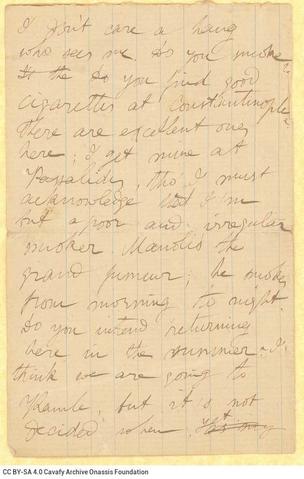 I don't care a hang
who sees me. Do you smoke?
Do you find good
cigarettes at Constantinople?
There are excellent ones
here; I get mine at
tho' I must
acknowledge that I'm
but a poor and irregular
smoker Manolis the
grand fumeur; he smokes
from morning to night.
Do you intend returning
here in the summer. I
think we are going to
Ramleh, but it is not
decided when.
CC BY-SA 4.0 Cavafy Archive Onassis Foundation